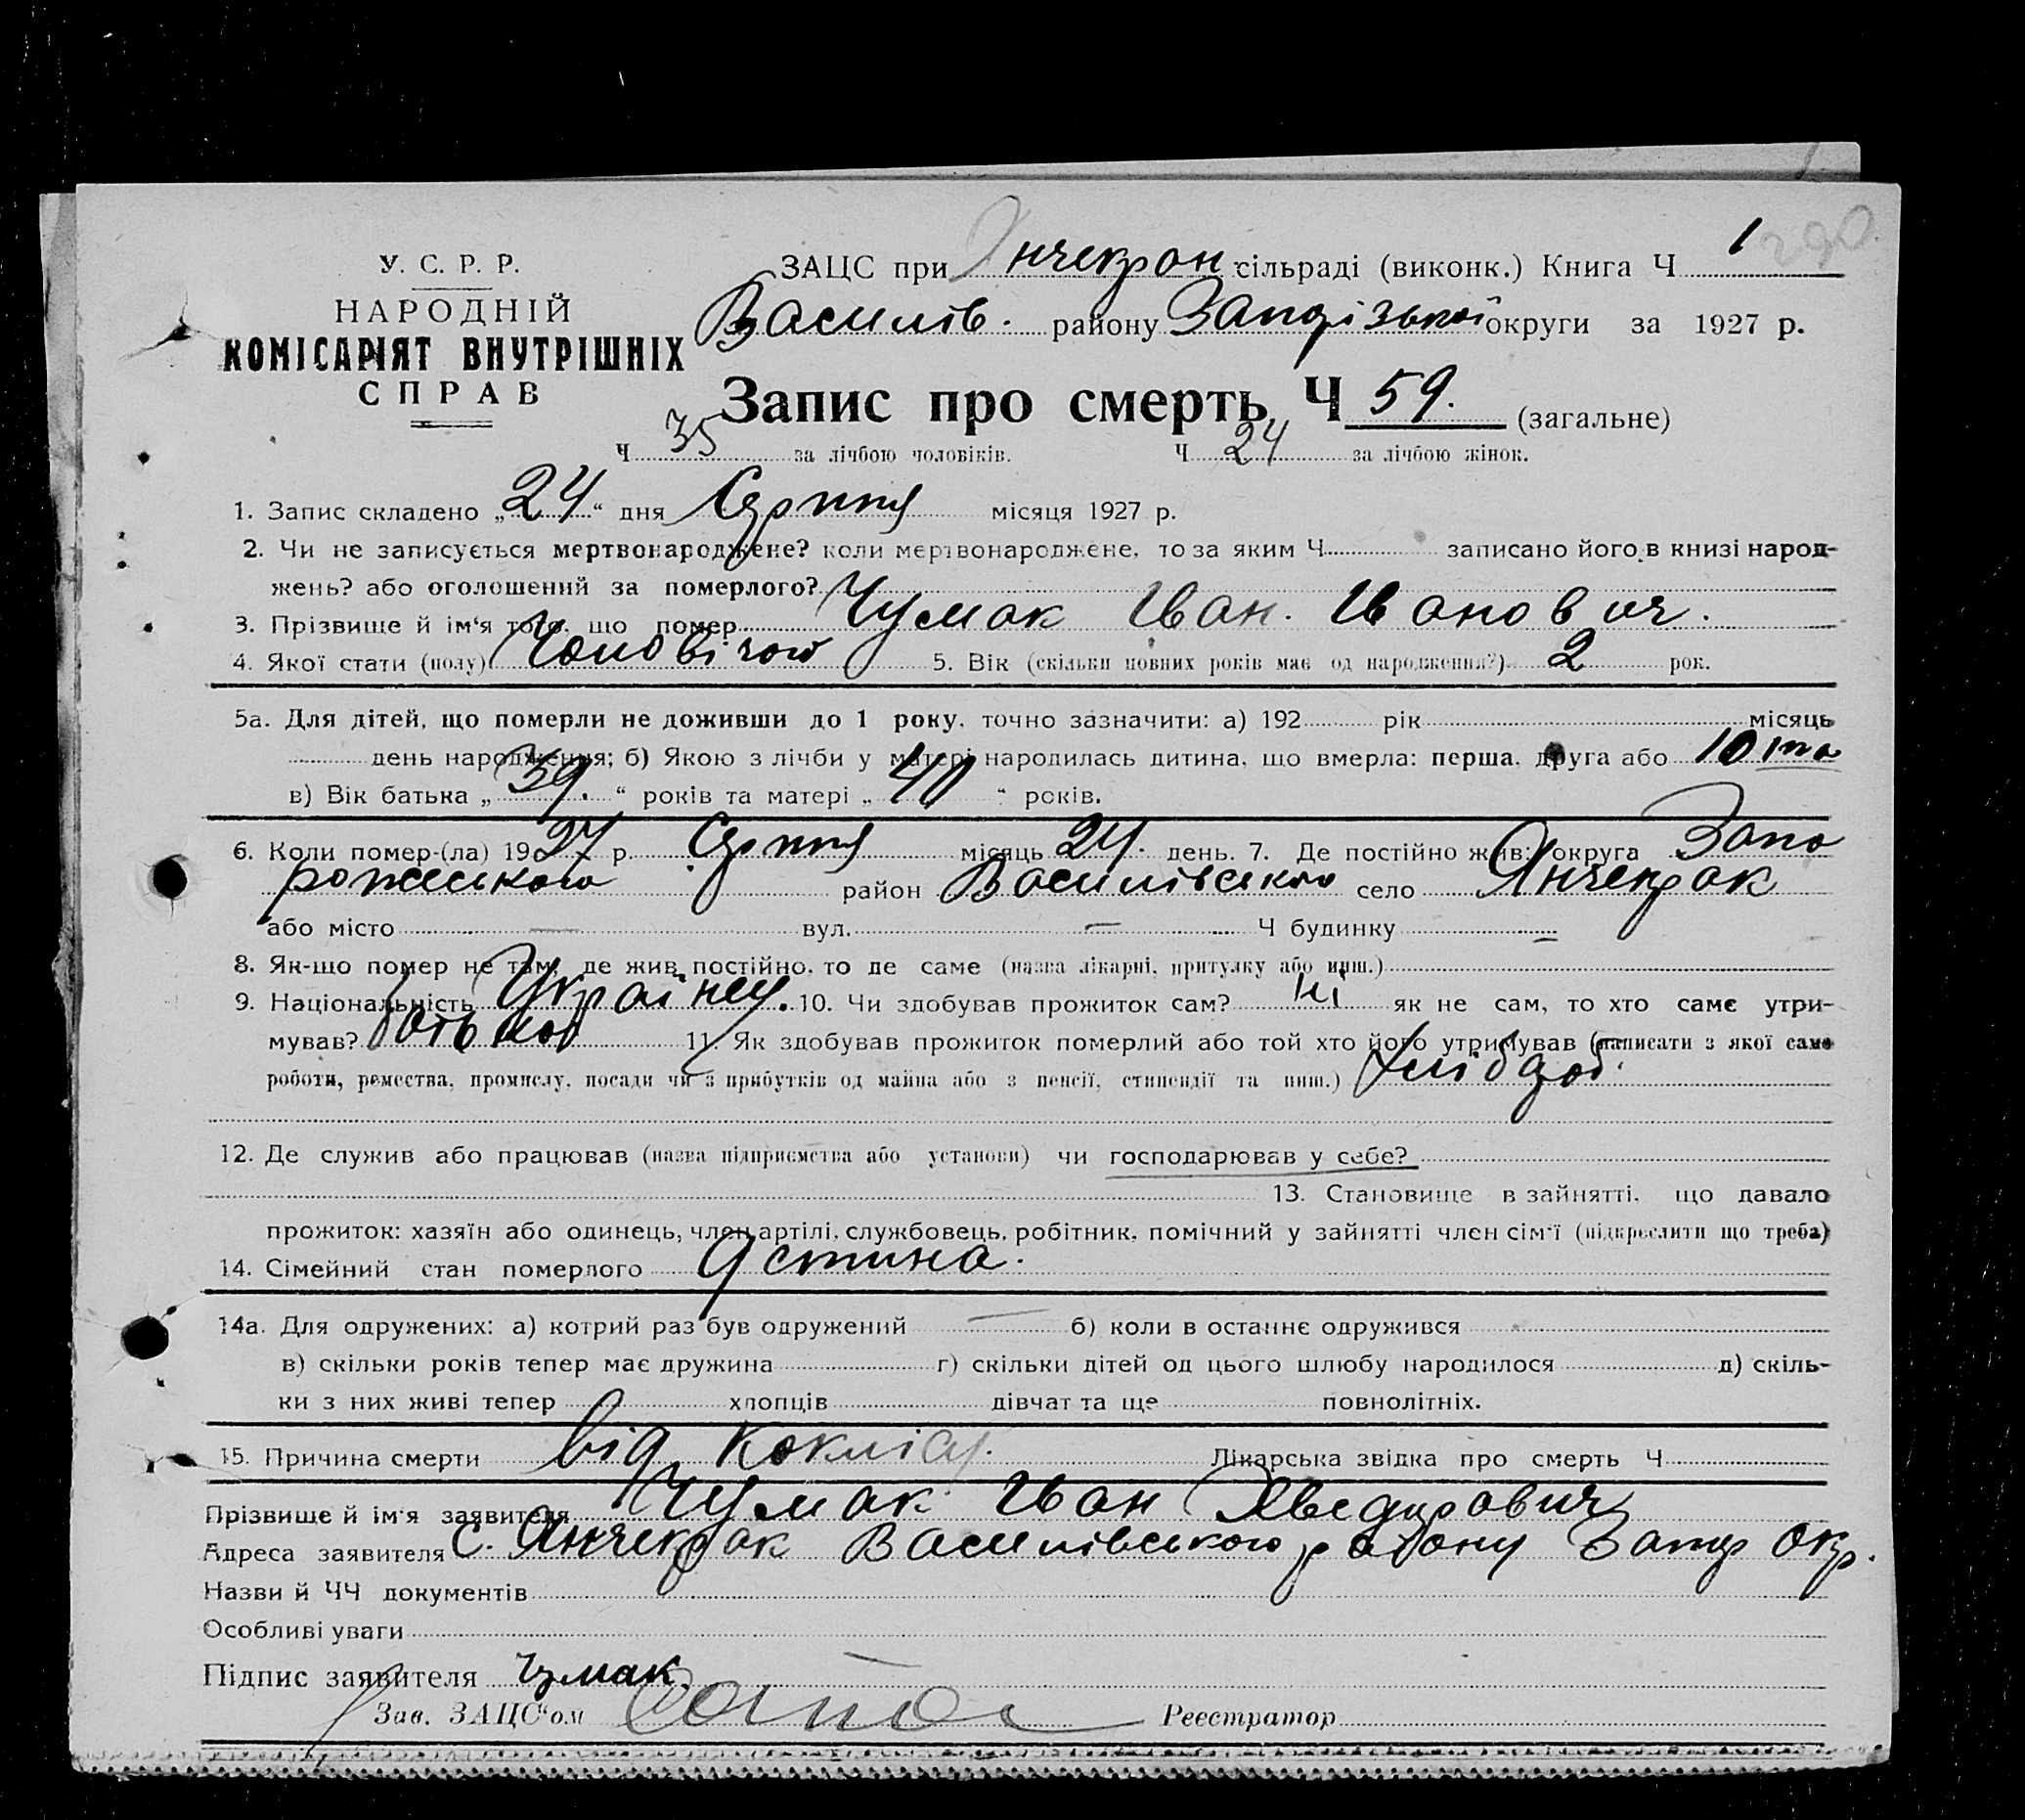 290
У. С. Р. Р.
НАРОДНІЙ
КОМІСАРІЯТ ВНУТРІШНІХ
СПРАВ
ЗАЦС при Янчекрак сільраді (виконк.) Книга Ч 1
Василів. району Запорізької округи за 1927 р.
Запис про смерть Ч 59. (загальне)
Ч 35 за лічбою чоловіків. Ч 24 за лічбою жінок.
1. Запис складено „24“ дня Серпня місяця 1927 р.
2. Чи не записується мертвонароджене? коли мертвонароджене, то за яким Ч записано його в книзі народ-
жень? або оголошений за померлого?
3. Прізвище й ім'я того, що помер Чумак Іван. Іванович.
4. Якої стати (полу) Чоловічої 5. Вік (скільки повних років має од народження?) 2 рок.
5а. Для дітей, що померли не доживши до 1 року, точно зазначити: а) 192 рік місяць
день народження; б) Якою з лічби у матері народилась дитина, що вмерла: перша, друга або 10 та
в) Вік батька „39.“ років та матері „40“ років.
6. Коли помер-(ла) 1927 р. Серпня місяць 24. день. 7. Де постійно жив: округа Запо
рожського район Василівського село Янчекрак
або місто — вул. — Ч будинку —
8. Як-що помер не там, де жив постійно, то де саме (назва лікарні, притулку або инш.)
9. Національність Українец. 10. Чи здобував прожиток сам? ні як не сам, то хто саме утри-
мував? батько 11. Як здобував прожиток померлий або той хто його утримував (написати з якої саме
роботи, ремества, промислу, посади чи з прибутків од майна або з пенсії, стипендії та инш.) Хлібороб.
12. Де служив або працював (назва підприємства або установи) чи господарював у себе?
13. Становище в зайнятті, що давало
прожиток: хазяїн або одинець, член артілі, службовець, робітник, помічний у зайнятті член сім'ї (підкреслити що треба)
14. Сімейний стан померлого детина.
14а. Для одружених: а) котрий раз був одружений — б) коли в останнє одружився
в) скільки років тепер має дружина г) скільки дітей од цього шлюбу народилося д) скіль-
ки з них живі тепер хлопців дівчат та ще повнолітніх.
15. Причина смерти від коклюсу. Лікарська звідка про смерть Ч
Прізвище й ім'я заявителя Чумак Іван Хведирович
Адреса заявителя с. Янчекрак Василівського району Запор окр.
Назви й ЧЧ документів
Особливі уваги
Підпис заявителя Чумак.
Зав. ЗАЦС“ом Реєстратор